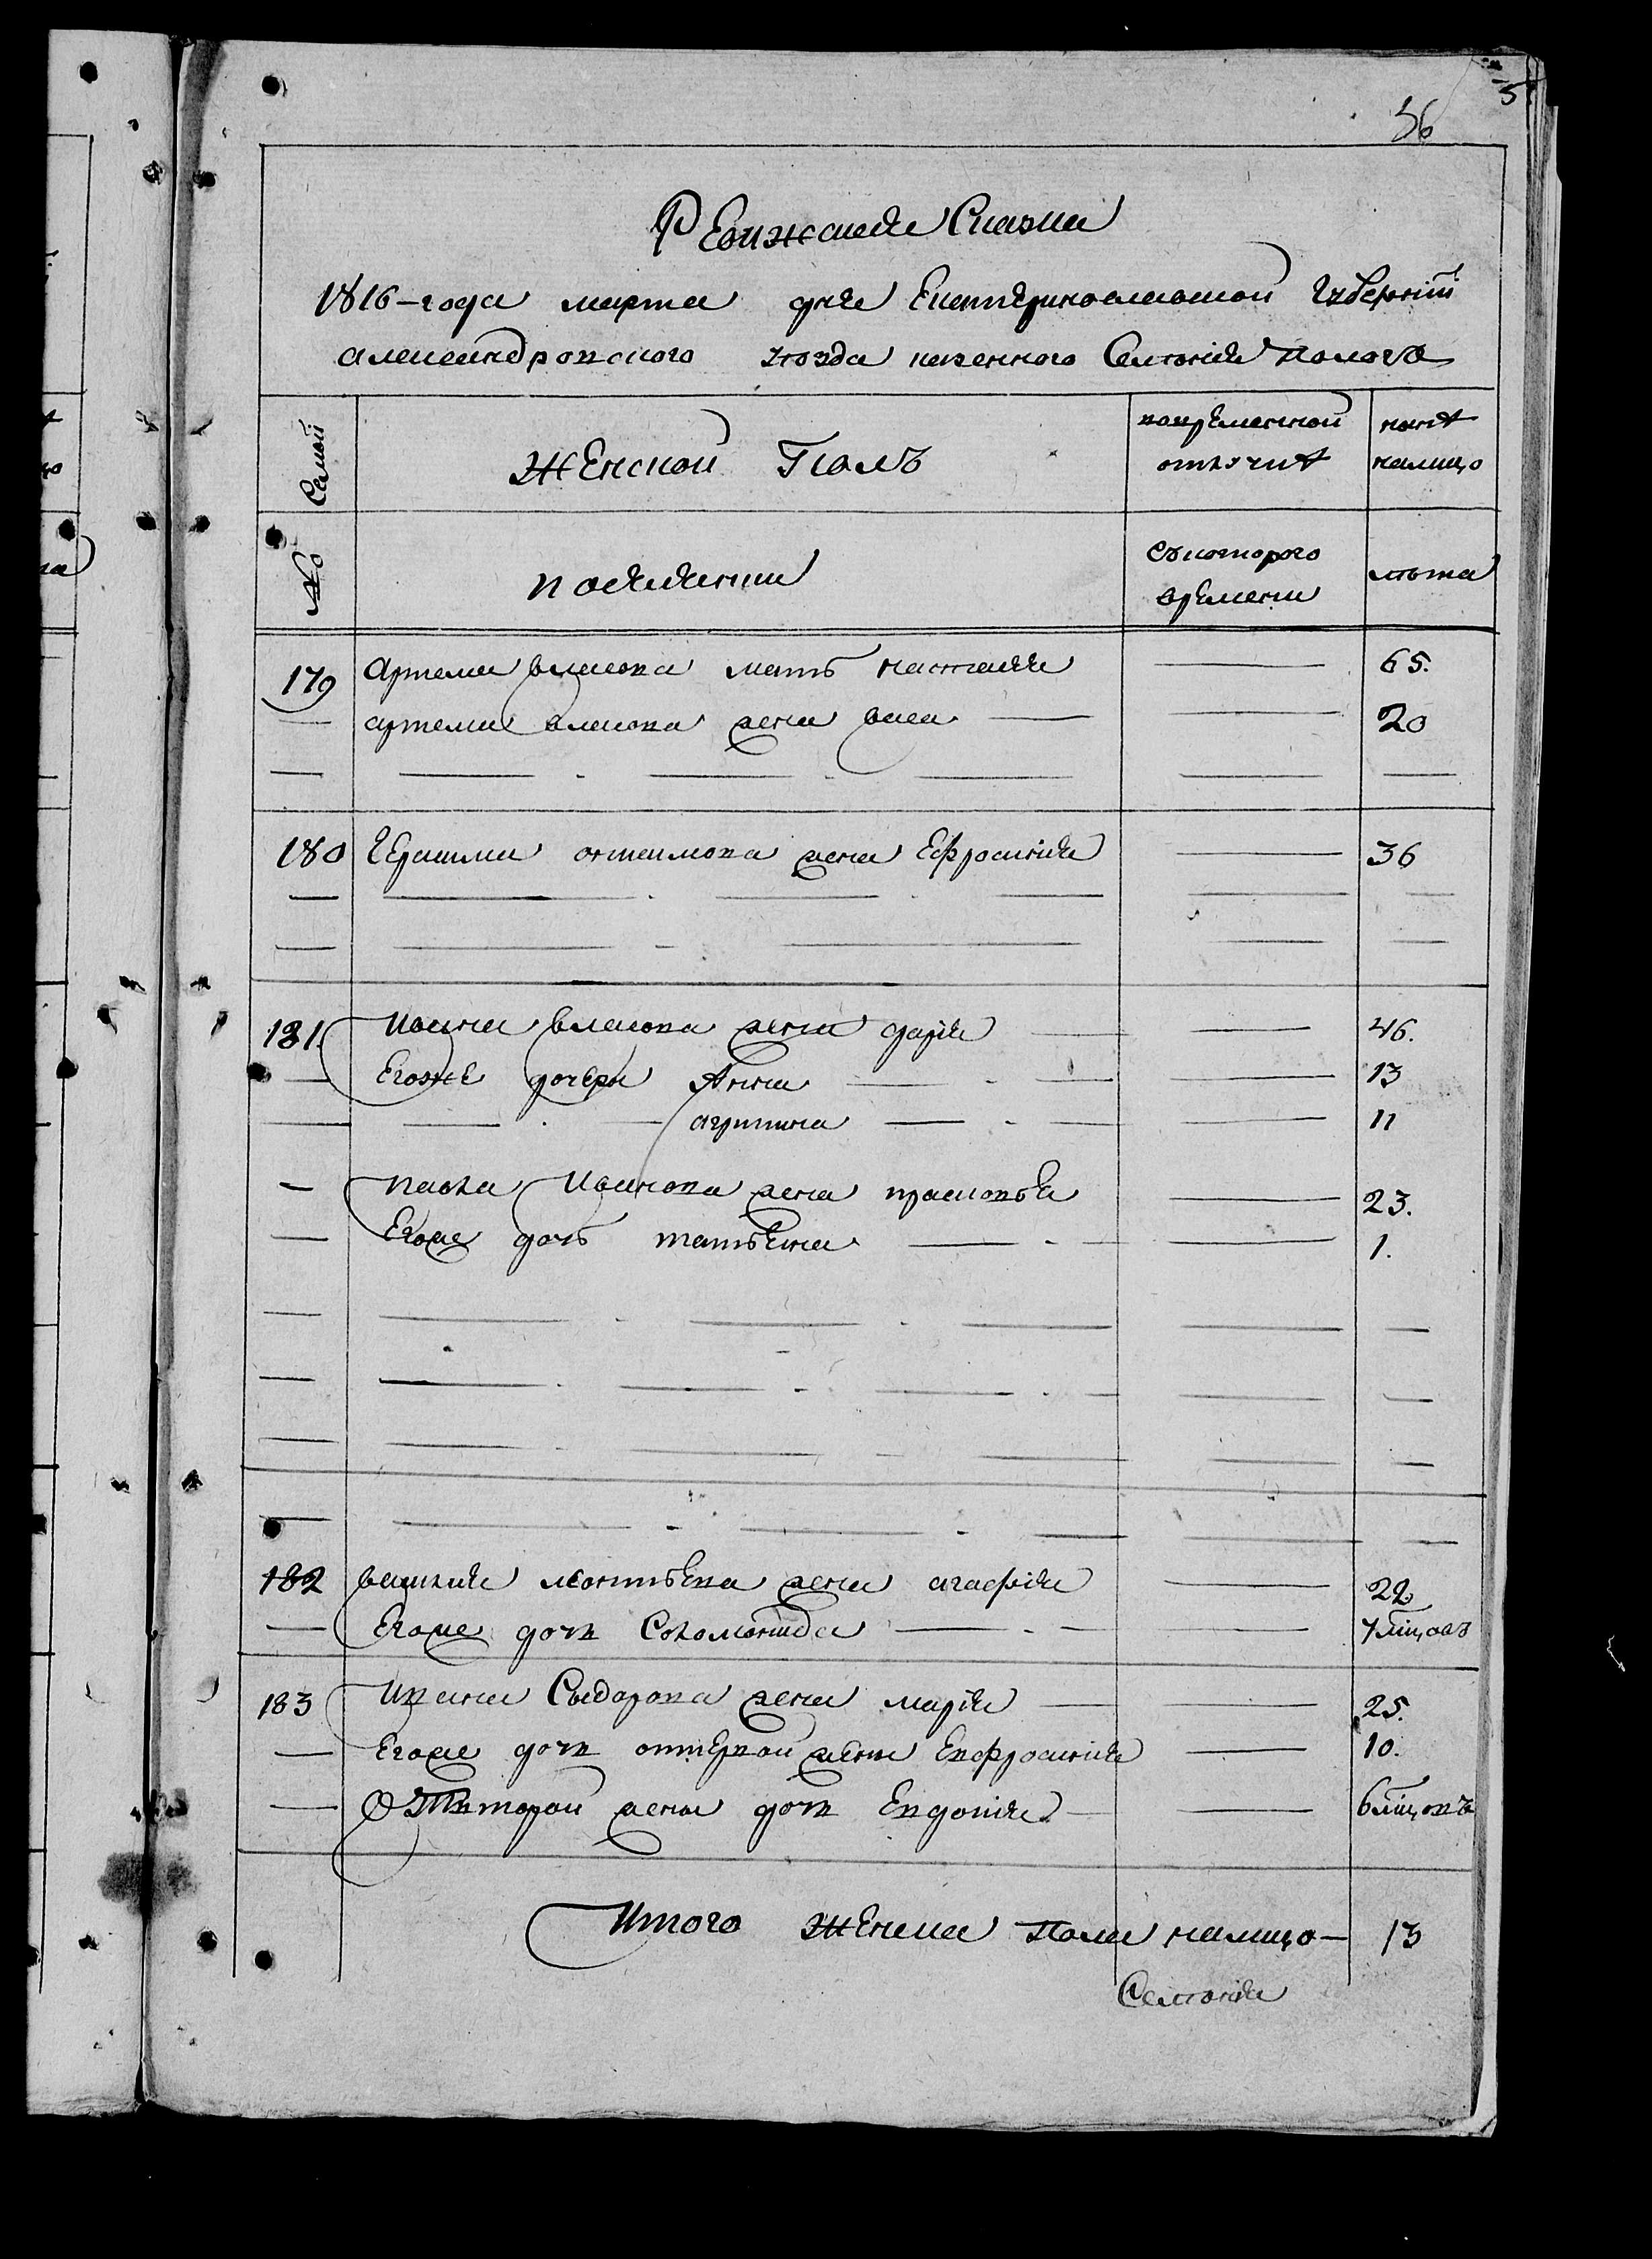 56
5
Ревижская Сказка
1816-года марта дня Екатеринославской Губерніи
александровского уѣзда казенного Селѣнія пологъ
Семей
Женской Полъ
вовременной отлучкѣ
нынѣ налицо
№
поселяники
съкоторого времени
лѣта
179 Артема власова мать настасия 65.
артема власова жена васса 20
180 Герасима жена Ефросинія 36
181. Ивана власова жена дарія 46.
Егоже дочери Анна 13
агрипина 11
павла Иванова жена прасковья 23.
Егоже дочь татьяна 1.
182 василия леонтьева жена агафія 22
Егоже дочь Соломонида 7 мѣцовъ
183 Ивана Сыдорова жена марія 25.
Егоже дочь отпервой жены Евфросинія 10.
Отвторой жены дочь Евдокия 6 мѣцовъ
Итого женска пола налицо 13
Селѣнія